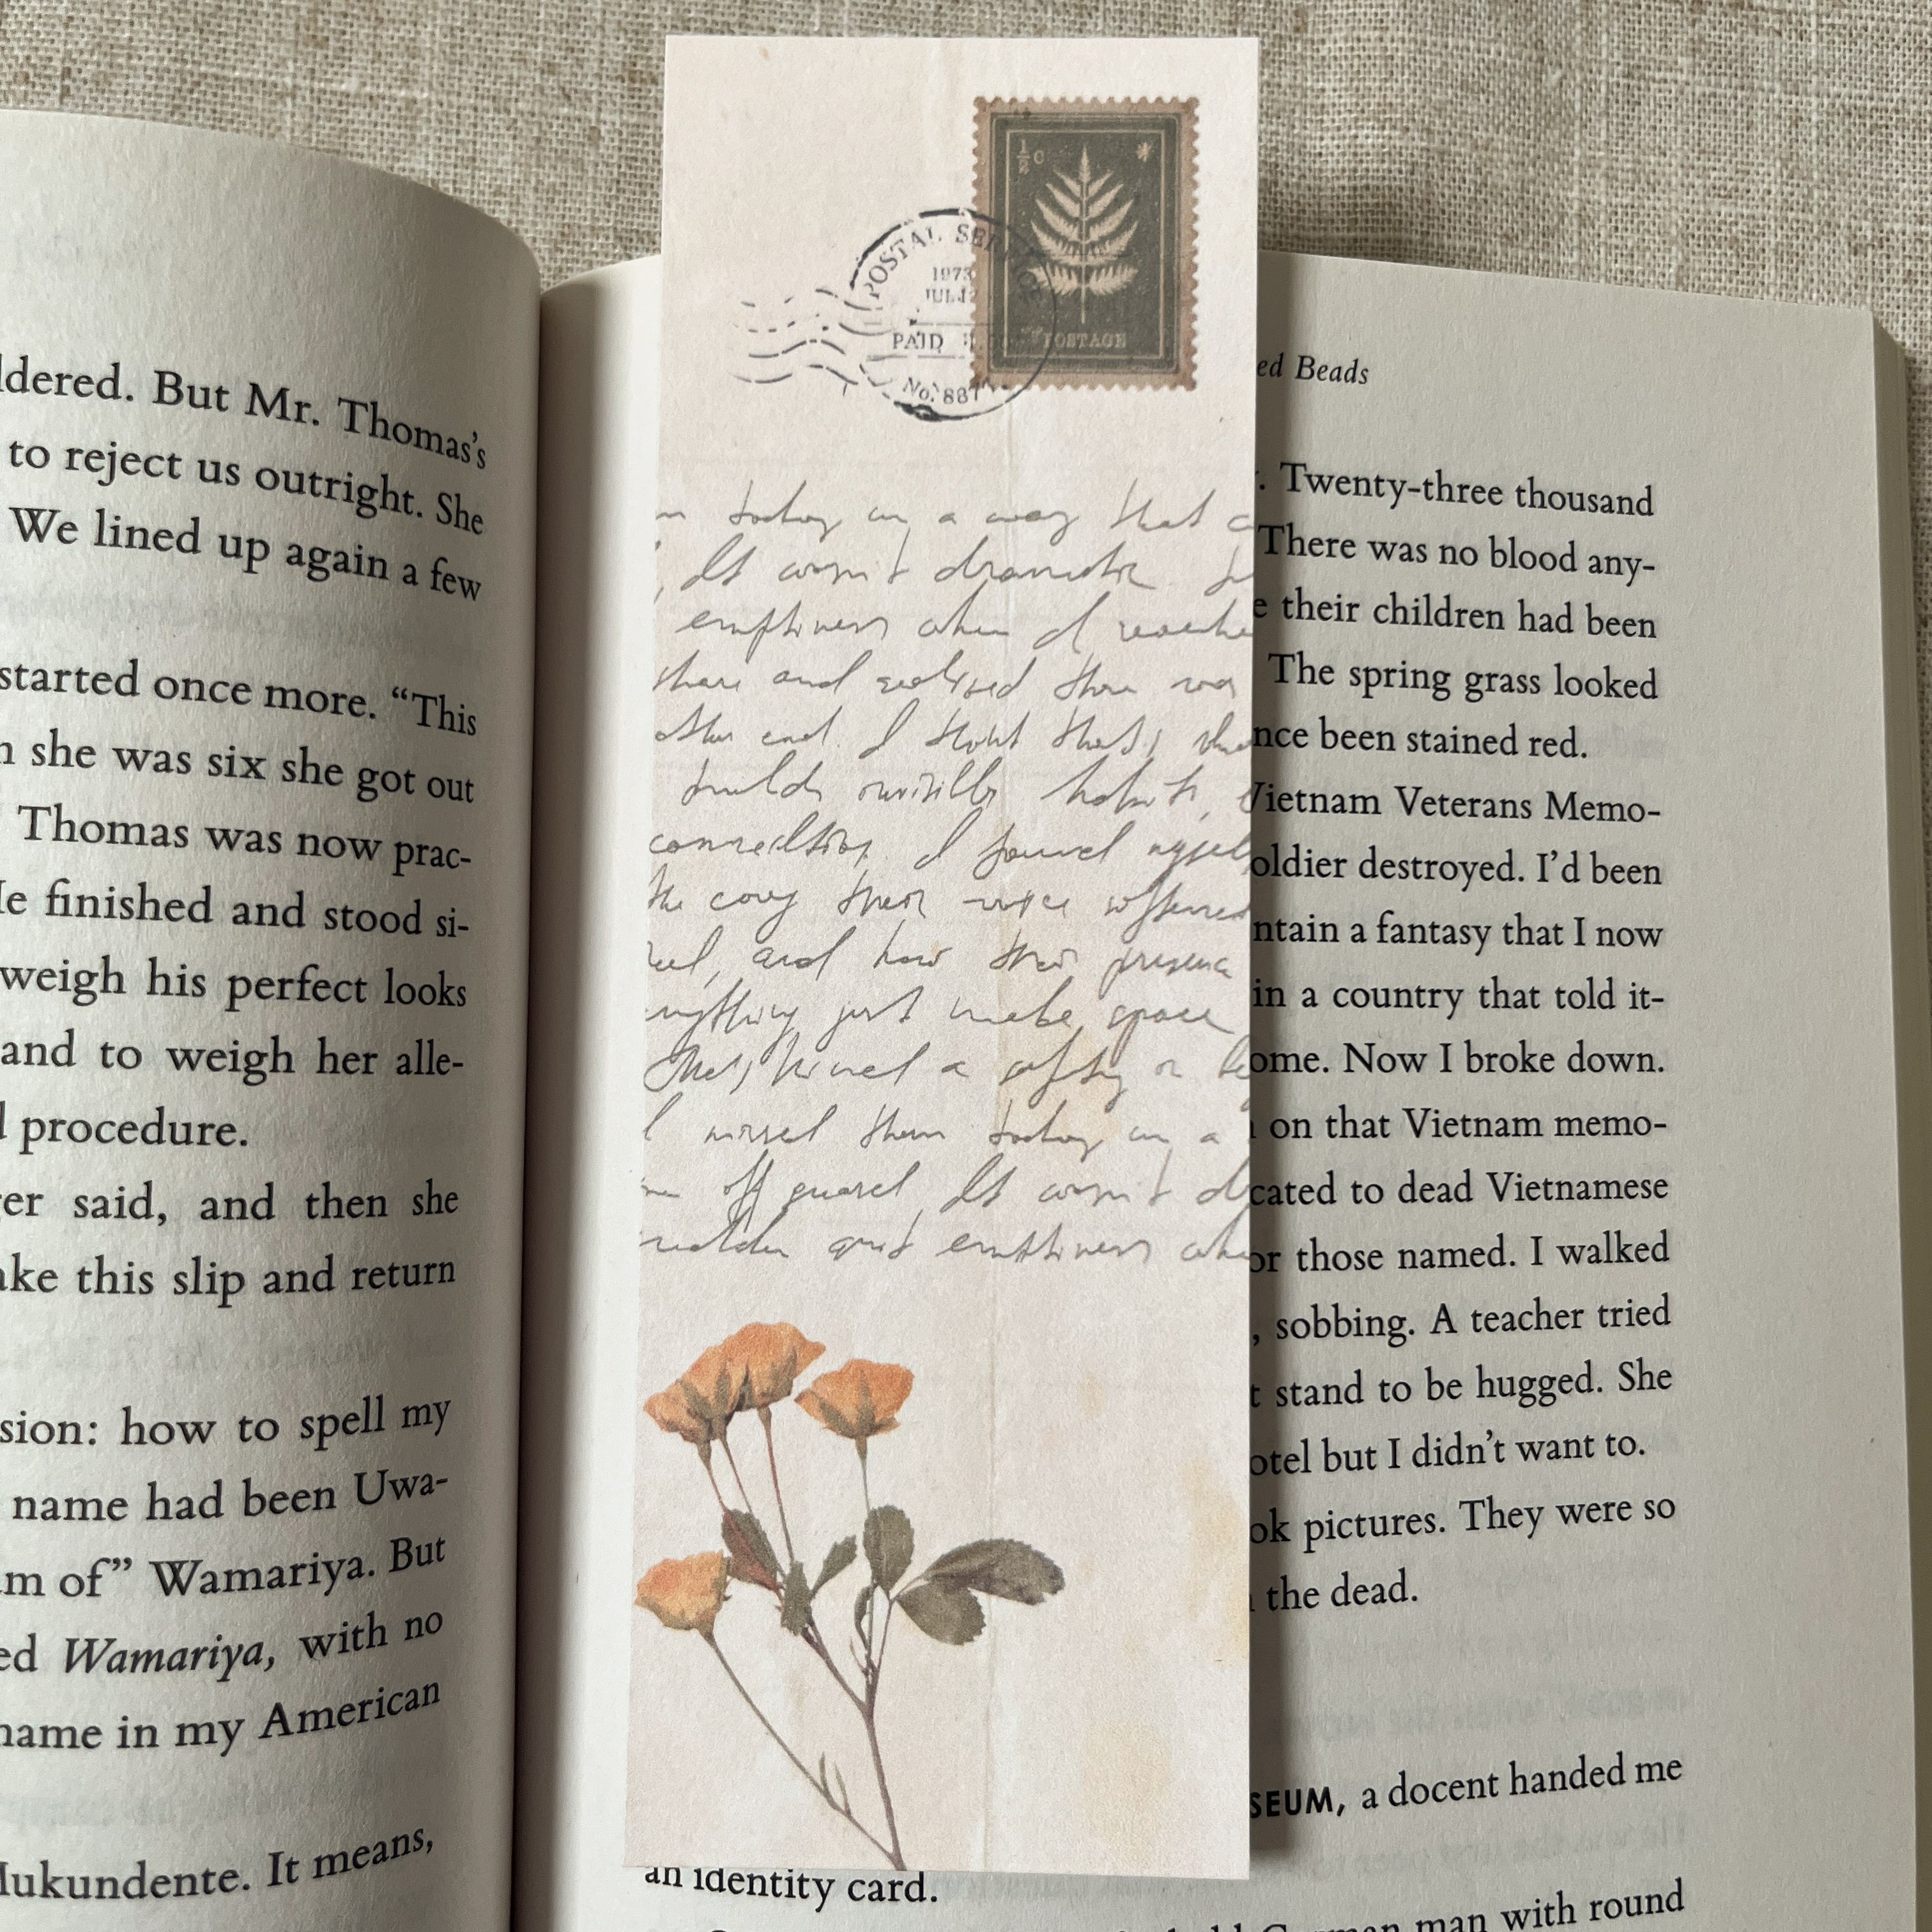 ldered. But Mr. Thomas's
to reject us outright. She
We lined up again a few
started once more. “This
n she was six she got out
Thomas was now prac-
He finished and stood si-
weigh his perfect looks
and to weigh her alle-
d procedure.
ger said, and then she
ake this slip and return
sion: how to spell my
name had been Uwa-
am of” Wamariya. But
ed Wamariya, with no
name in my American
Mukundente. It means,
½ c
POSTAGE
POSTAL SERVICE
1973
JUL 12
PAID
No. 887
today in a way that
It wasn't dramatic
emptiness when I reache
share and realised there was
other end. I think that's
builds invisible habits,
connection. I found myself
the way their voice softened
and how their presence
anything just make space
that, kind a softly
I missed them today in a
me off guard. It wasn't
sudden quiet emptiness when
ed Beads
. Twenty-three thousand
There was no blood any-
e their children had been
The spring grass looked
nce been stained red.
Vietnam Veterans Memo-
oldier destroyed. I’d been
ntain a fantasy that I now
in a country that told it-
ome. Now I broke down.
on that Vietnam memo-
cated to dead Vietnamese
or those named. I walked
, sobbing. A teacher tried
t stand to be hugged. She
otel but I didn’t want to.
ok pictures. They were so
the dead.
SEUM, a docent handed me
an identity card.
man with round